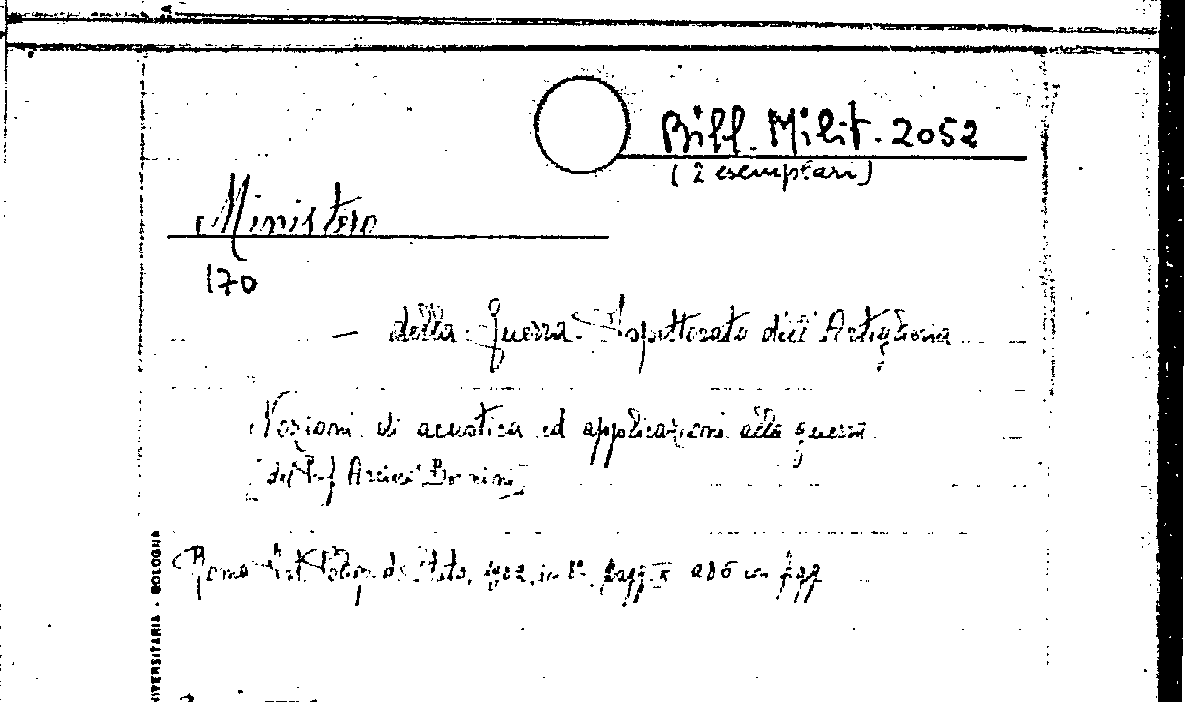 Bibl. Milit. 2052
(2 esemplari)
Ministero
170
— della Guerra. Ispettorato dell'Artiglieria
Nozioni di acustica ed applicazioni alla guerra
[del Prof Bonini]
Roma Ist. Polig. dello Stato, in 8° pagg. X con figg
VERSITARIA - BOLOGNA